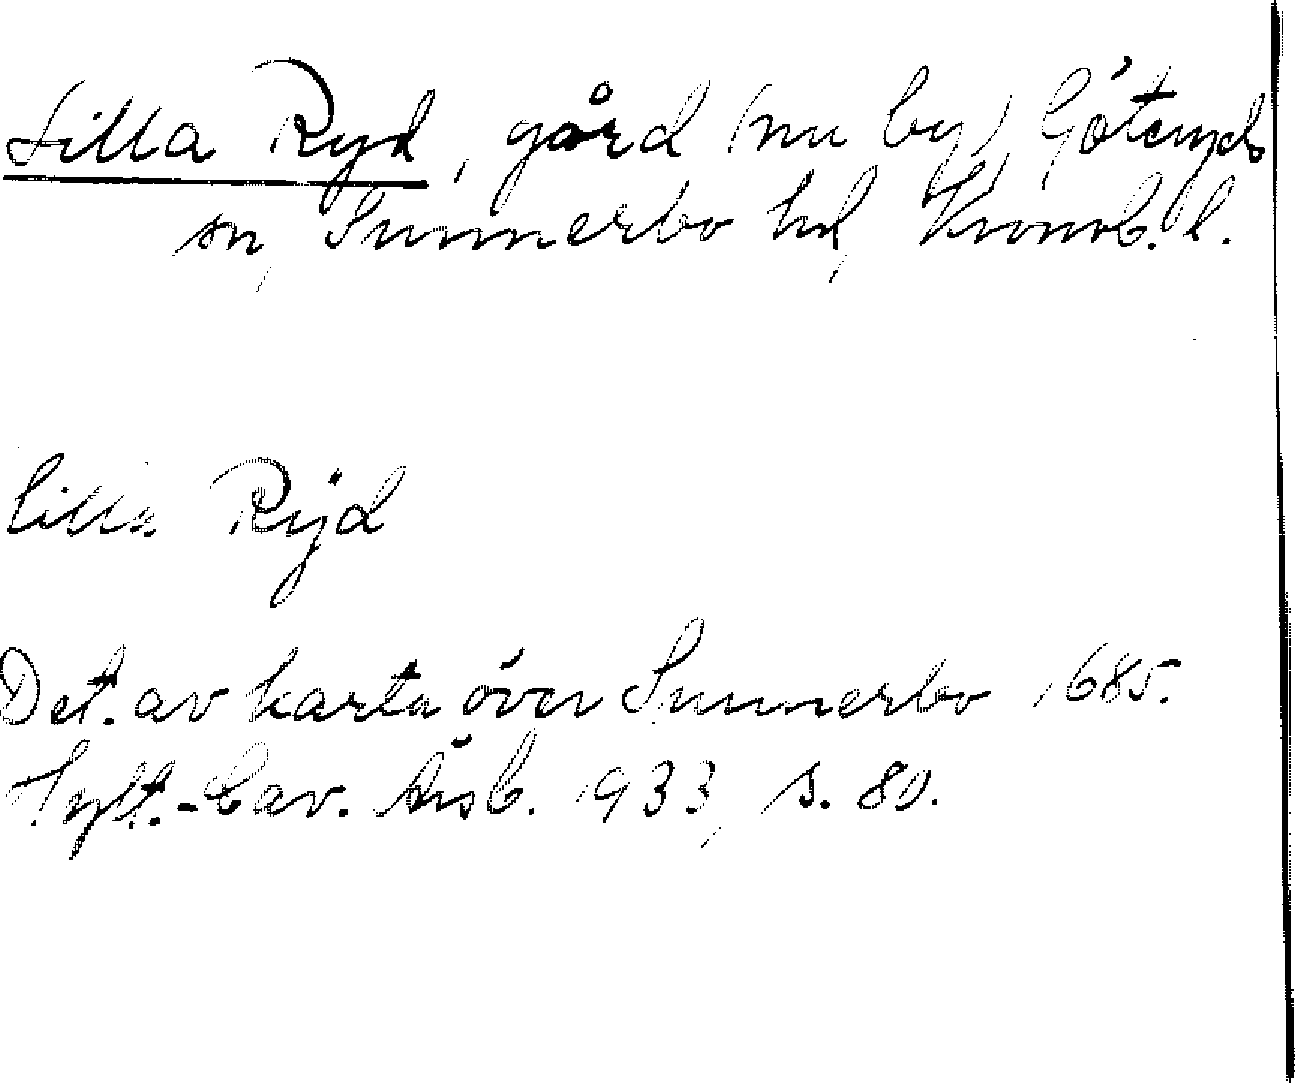 Lilla Ryd, gård (nu by), Göteryds
sn, Sunnerbo hd, Kronob. l.
Lilla Rÿd
Det. av karta över Sunnerbo 1685.
Hylt.-Cav. Årsb. 1933, s. 80.